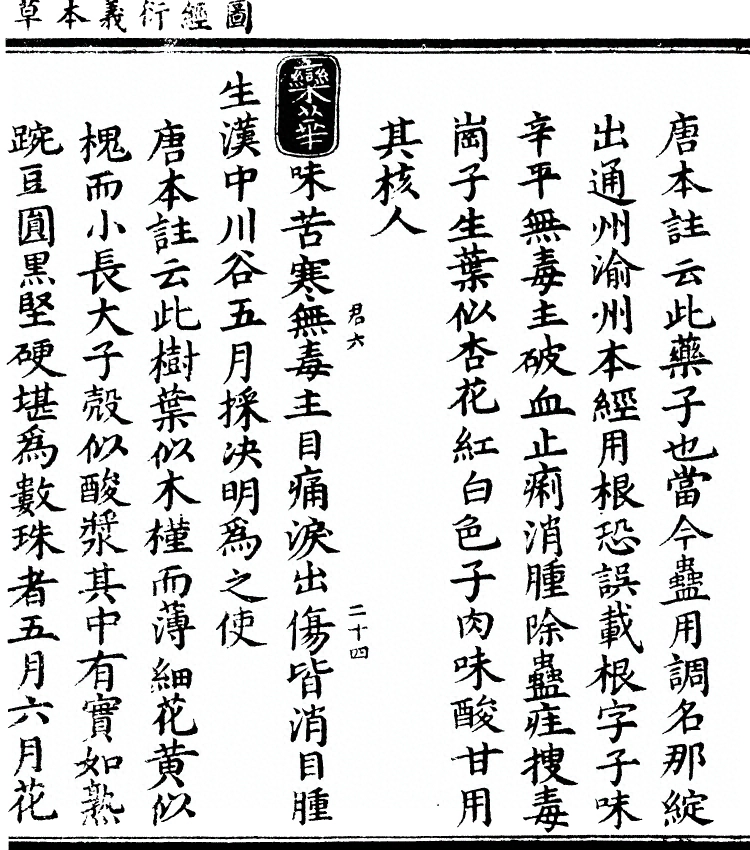 圖經衍義本草
唐本註云此藥子也當今蠱用調名那綻
出通州渝州本經用根恐誤載根字子味
辛平無毒主破血止痢消腫除蠱疰搜毒
崗子生葉似杏花紅白色子肉味酸甘用
其核人
君六
二十四
欒華味苦寒無毒主目痛淚出傷皆消目腫
生漢中川谷五月採决明爲之使
唐本註云此樹葉似木槿而薄細花黄似
槐而小長大子殼似酸漿其中有實如熟
豌豆圓黒堅硬堪爲數珠者五月六月花